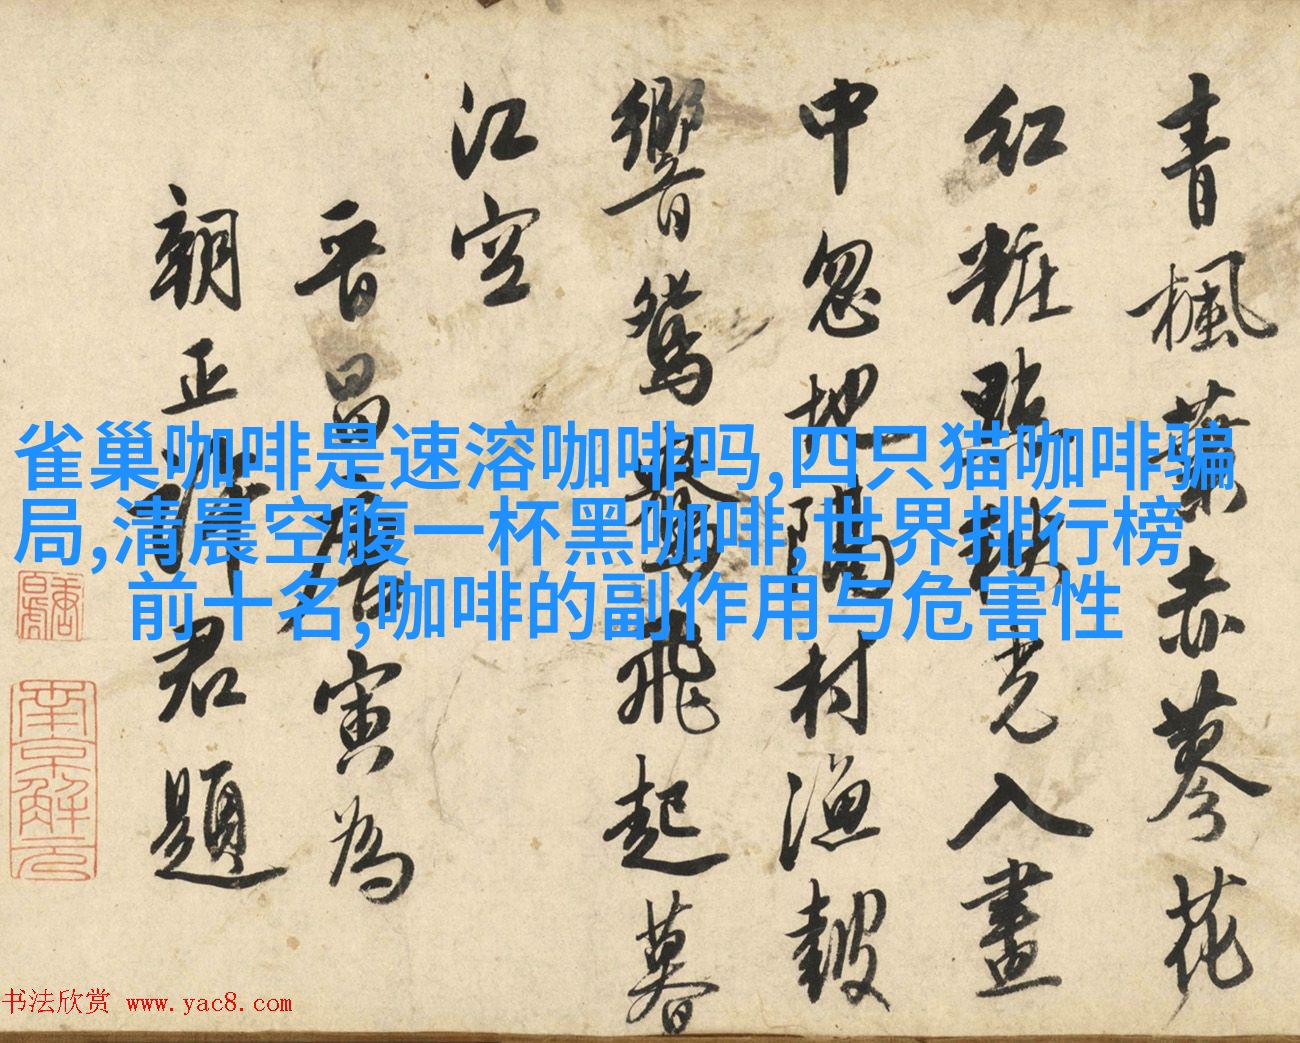 青楓葉赤蓼花
紅粧點秋光入畫
中忽地隔村漁鼓
響鴛鴦飛起暮
江空
晉昌唐寅為
朝正君題
南京解元
雀巢咖啡是速溶咖啡吗,四只猫咖啡骗
局,清晨空腹一杯黑咖啡,世界排行榜
前十名,咖啡的副作用与危害性
书法欣赏 www.yac8.com